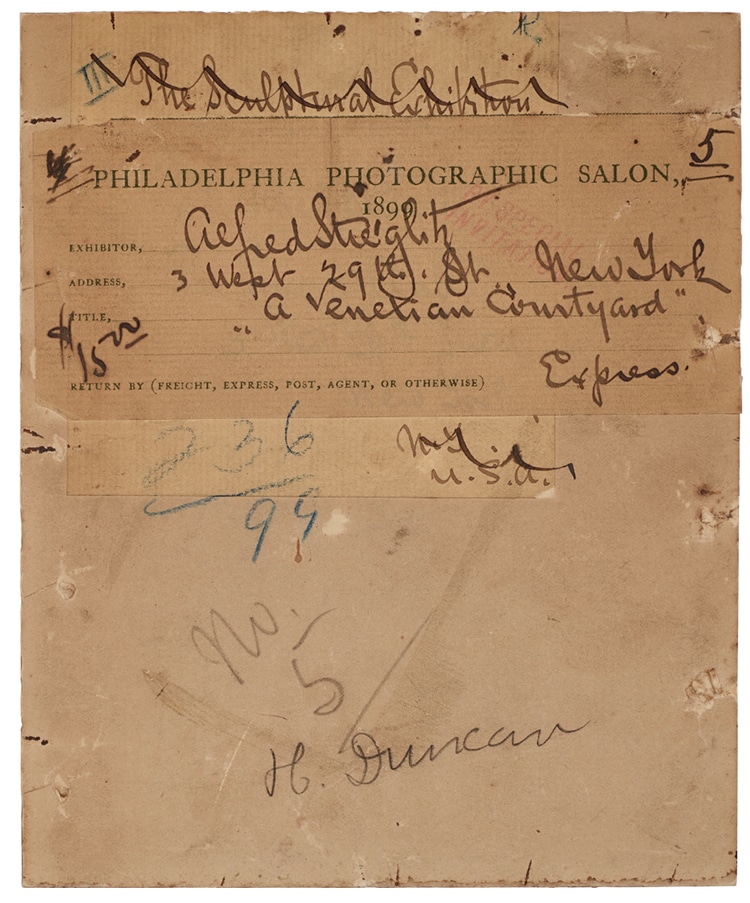 III
K
The Sculptural Exhibition.
4
5
PHILADELPHIA PHOTOGRAPHIC SALON,
1899
SPECIAL
INVITATION
EXHIBITOR, Alfred Stieglitz
ADDRESS, 3 West 29th. St. New York
TITLE, "A Venetian Courtyard"
$15.00
RETURN BY (FREIGHT, EXPRESS, POST, AGENT, OR OTHERWISE) Express.
236
99
N.Y.
U.S.A.
No.
5
H. Duncan